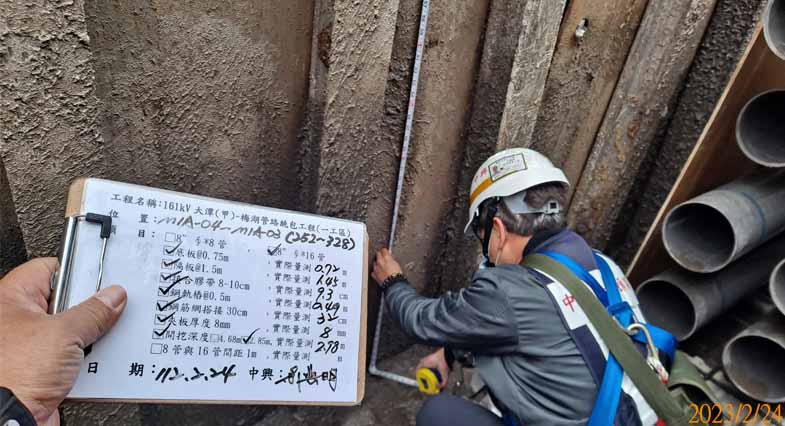 工程名稱:161kV 大潭(甲)-梅湖管路統包工程(一工區)
位 置: M1A-04~M1A-03 (252~328)
項 目: □8" 6*8 管 ☑8" 6*16 管
☑底板@0.75m ,實際量測 0.72 m
☑隔板@1.5m ,實際量測 1.45 m
☑接合膠帶 8-10cm ,實際量測 9.3 cm
☑鋼軌樁@0.5m ,實際量測 0.49 m
☑鋼筋網搭接 30cm ,實際量測 32 cm
☑夾板厚度 8mm ,實際量測 8 mm
☑開挖深度□4.68m☑2.85m,實際量測 2.98 m
□8 管與 16 管間距 1m ,實際量測 m
日 期: 112.2.24 中興:
2023/2/24